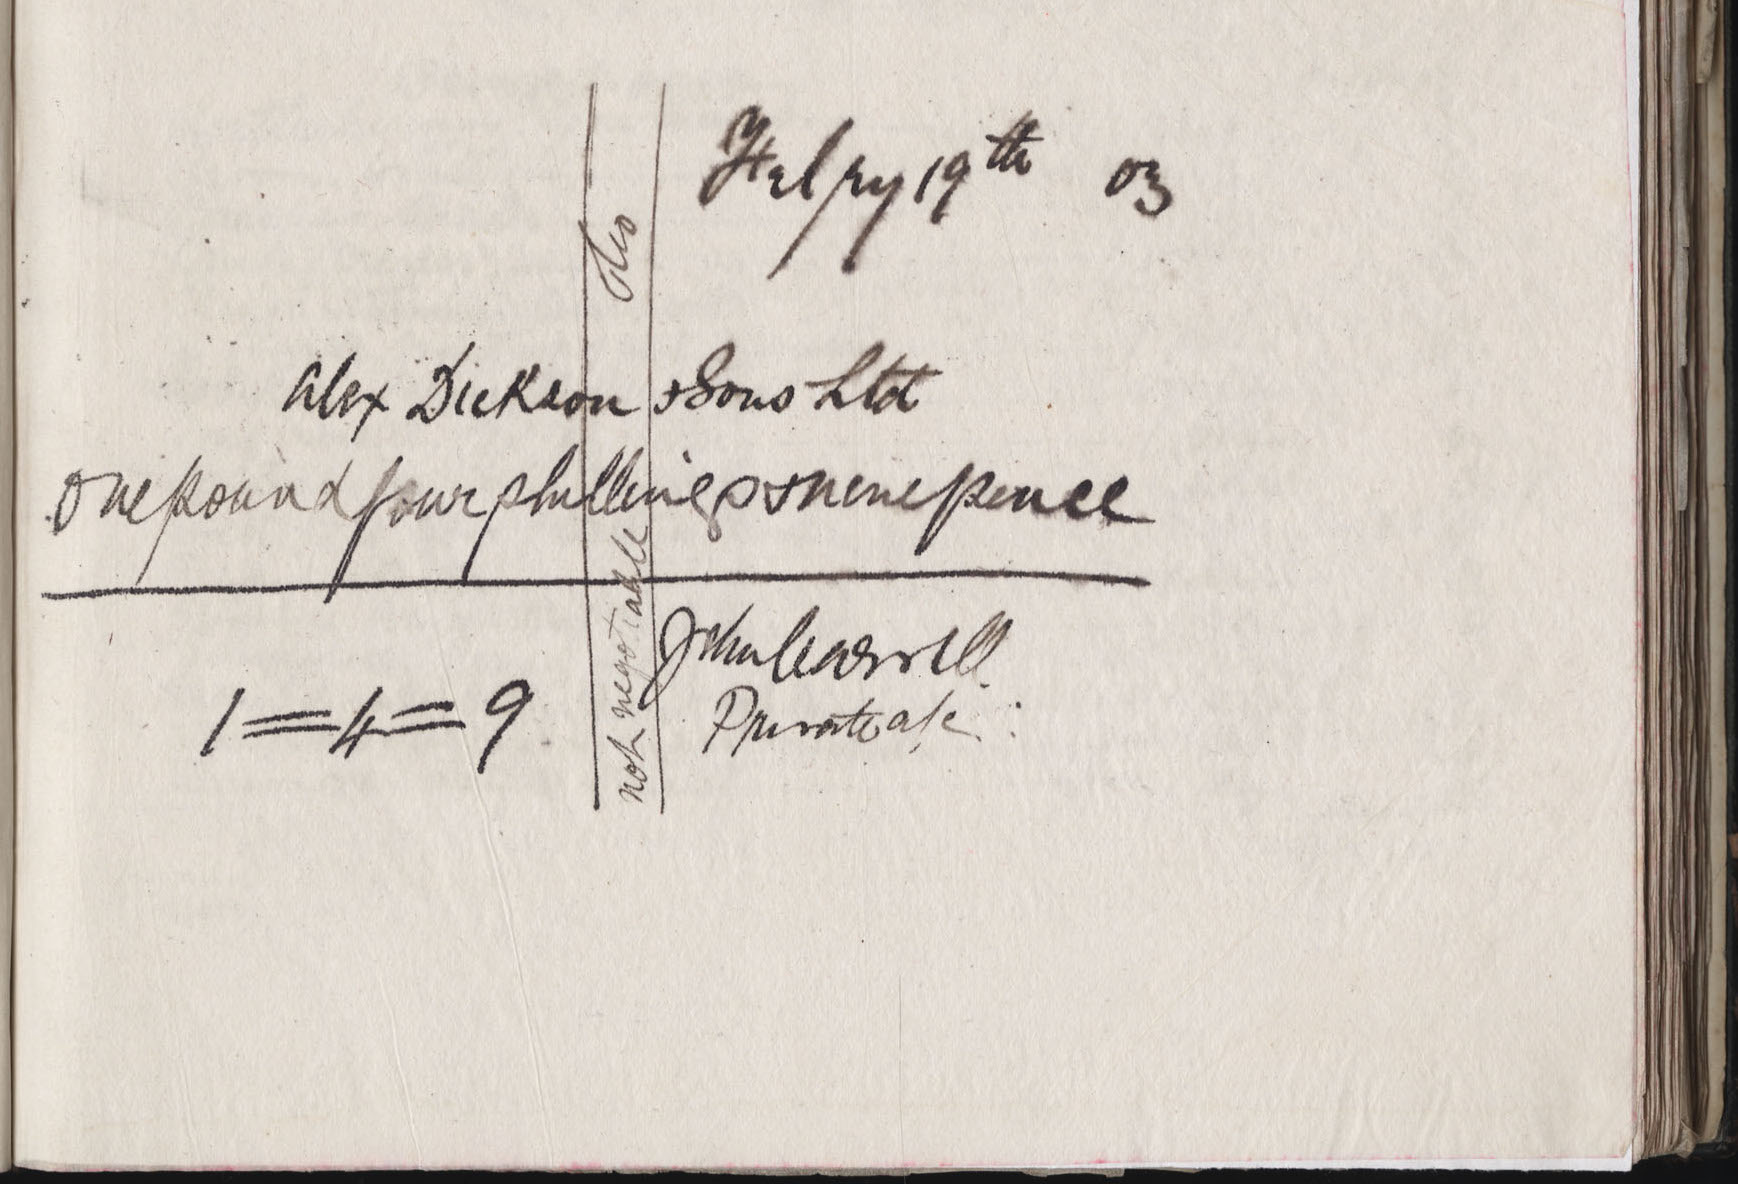 Febry 19th 03
Alex Dickson & Sons Ltd
One pound four shillings & nine pence
John Carroll
1=4=9
Private a/c
not negotiable